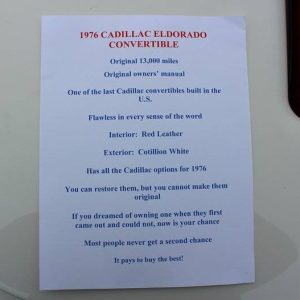 1976 CADILLAC ELDORADO
CONVERTIBLE
Original 13,000 miles
Original owners' manual
One of the last Cadillac convertibles built in the
U.S.
Flawless in every sense of the word
Interior: Red Leather
Exterior: Cotillion White
Has all the Cadillac options for 1976
You can restore them, but you cannot make them
original
If you dreamed of owning one when they first
came out and could not, now is your chance
Most people never get a second chance
It pays to buy the best!